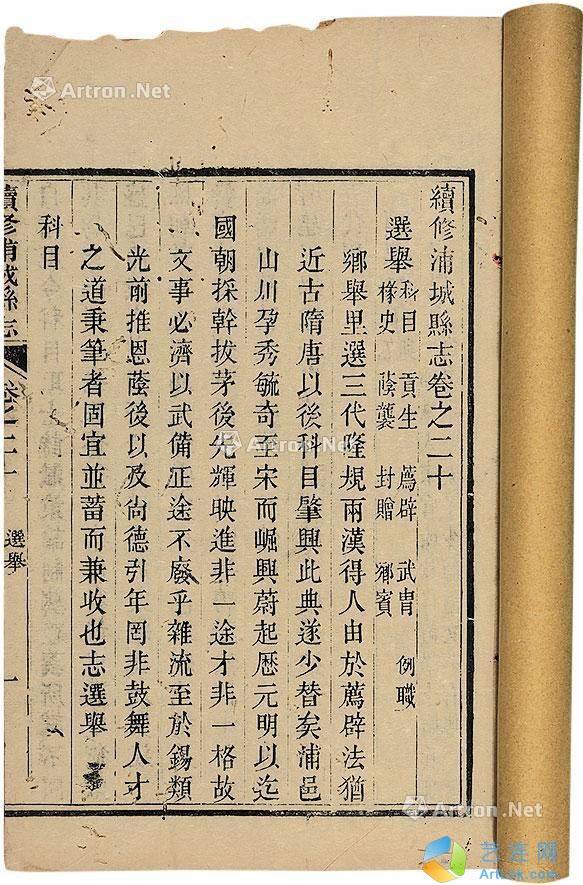 續修浦城縣志卷之二十
選舉 科目 貢生 薦辟 武胄 例職
掾史 蔭襲 封贈 鄉賓
鄉舉里選三代隆規兩漢得人由於薦辟法猶
近古隋唐以後科目肇興此典遂少替矣浦邑
山川孕秀毓奇至宋而崛興蔚起歷元明以迄
國朝採幹拔茅後先輝映進非一途才非一格故
文事必濟以武備正途不廢乎雜流至於錫類
光前推恩蔭後以及尙德引年罔非鼓舞人才
之道秉筆者固宜並蓄而兼收也志選舉
科目
續修浦城縣志
卷之二十
選舉
一
Artron.Net
Artron.Net
Artron.Net
艺连网